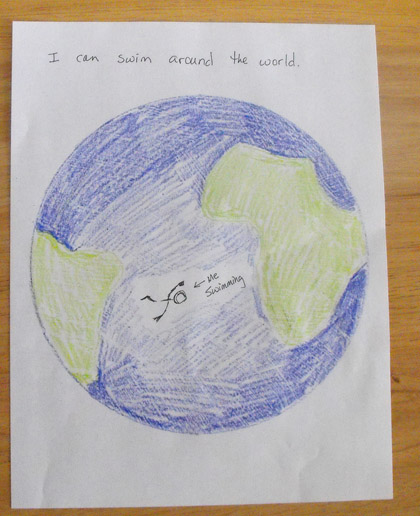 I can swim around the world.
← Me
Swimming